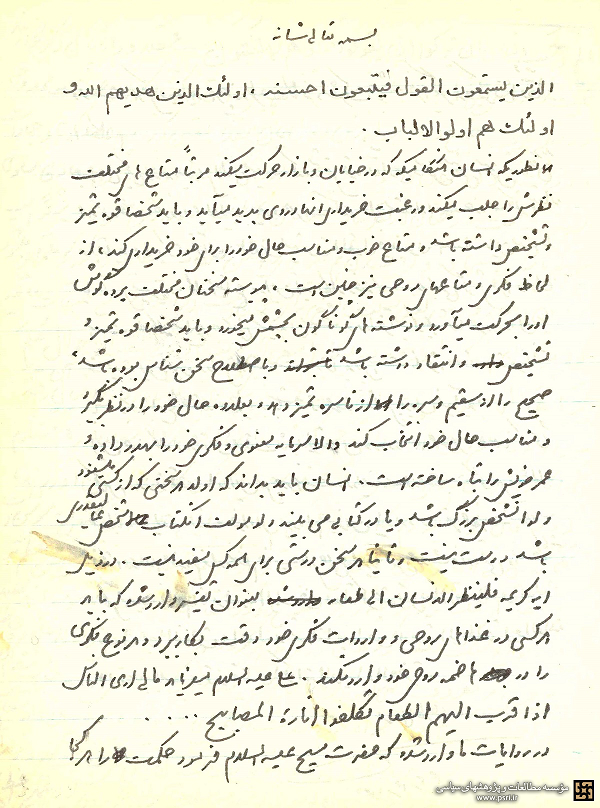 بسمه تعالی شأنه
الذین یستمعون القول فیتبعون احسنه ، اولئك الذین هدیهم الله و
اولئك هم اولو الالباب .
همانطوریکه انسان هنگامیکه که در خیابان و بازار حرکت میکند مرتباً متاع های مختلف
نظرش را جلب میکند و رغبت خریداری آنها در وی پدید میآید و باید شخصا قوه تمیز
و تشخیص داشته باشد و متاع خوب و مناسب حال خود را برای خود خریداری کند ، از
لحاظ فکری و متاعهای روحی نیز چنین است . پیوسته سخنان مختلف پرده گوشش
او را بحرکت میآورد و نوشته های گوناگون بچشمش میخورد و باید شخصا قوه تمیز و
تشخیص و انتقاد داشته باشد و باصطلاح سخن شناس بوده باشد ،
صحیح را از سقیم و سره را از ناسره تمیز دهد و بعلاوه حال خود را در نظر بگیرد
و مناسب حال خود انتخاب کند والا سرمایه معنوی و فکری خود را بهدر داده و
عمر خویش را تباه ساخته است . انسان باید بداند که اولا هر سخنی که از کسی میشنود
ولو آنشخص بزرگ باشد و یا در کتابی می بیند ولو مولف آنکتاب شخص عالیقدری
باشد درست نیست و ثانیا هر سخن درستی برای همه کس مفید نیست . در ذیل
آیه کریمه فلینظر الانسان الی طعامه بعنوان تفسیر وارد شده که باید
هر کسی در غذاهای روحی و واردات فکری خود دقت بکار برد و هر نوع فکری
را در هاضمه روحی خود وارد نکند . علی علیه السلام میفرماید مالی اری الناس
اذا قرب الیهم الطعام تکلفوا انارة المصابیح . . . . .
در روایات ما وارد شده که حضرت مسیح علیه السلام فرمود حکمت را هر کجا
مؤسسه مطالعات و پژوهشهای سیاسی
www.psri.ir